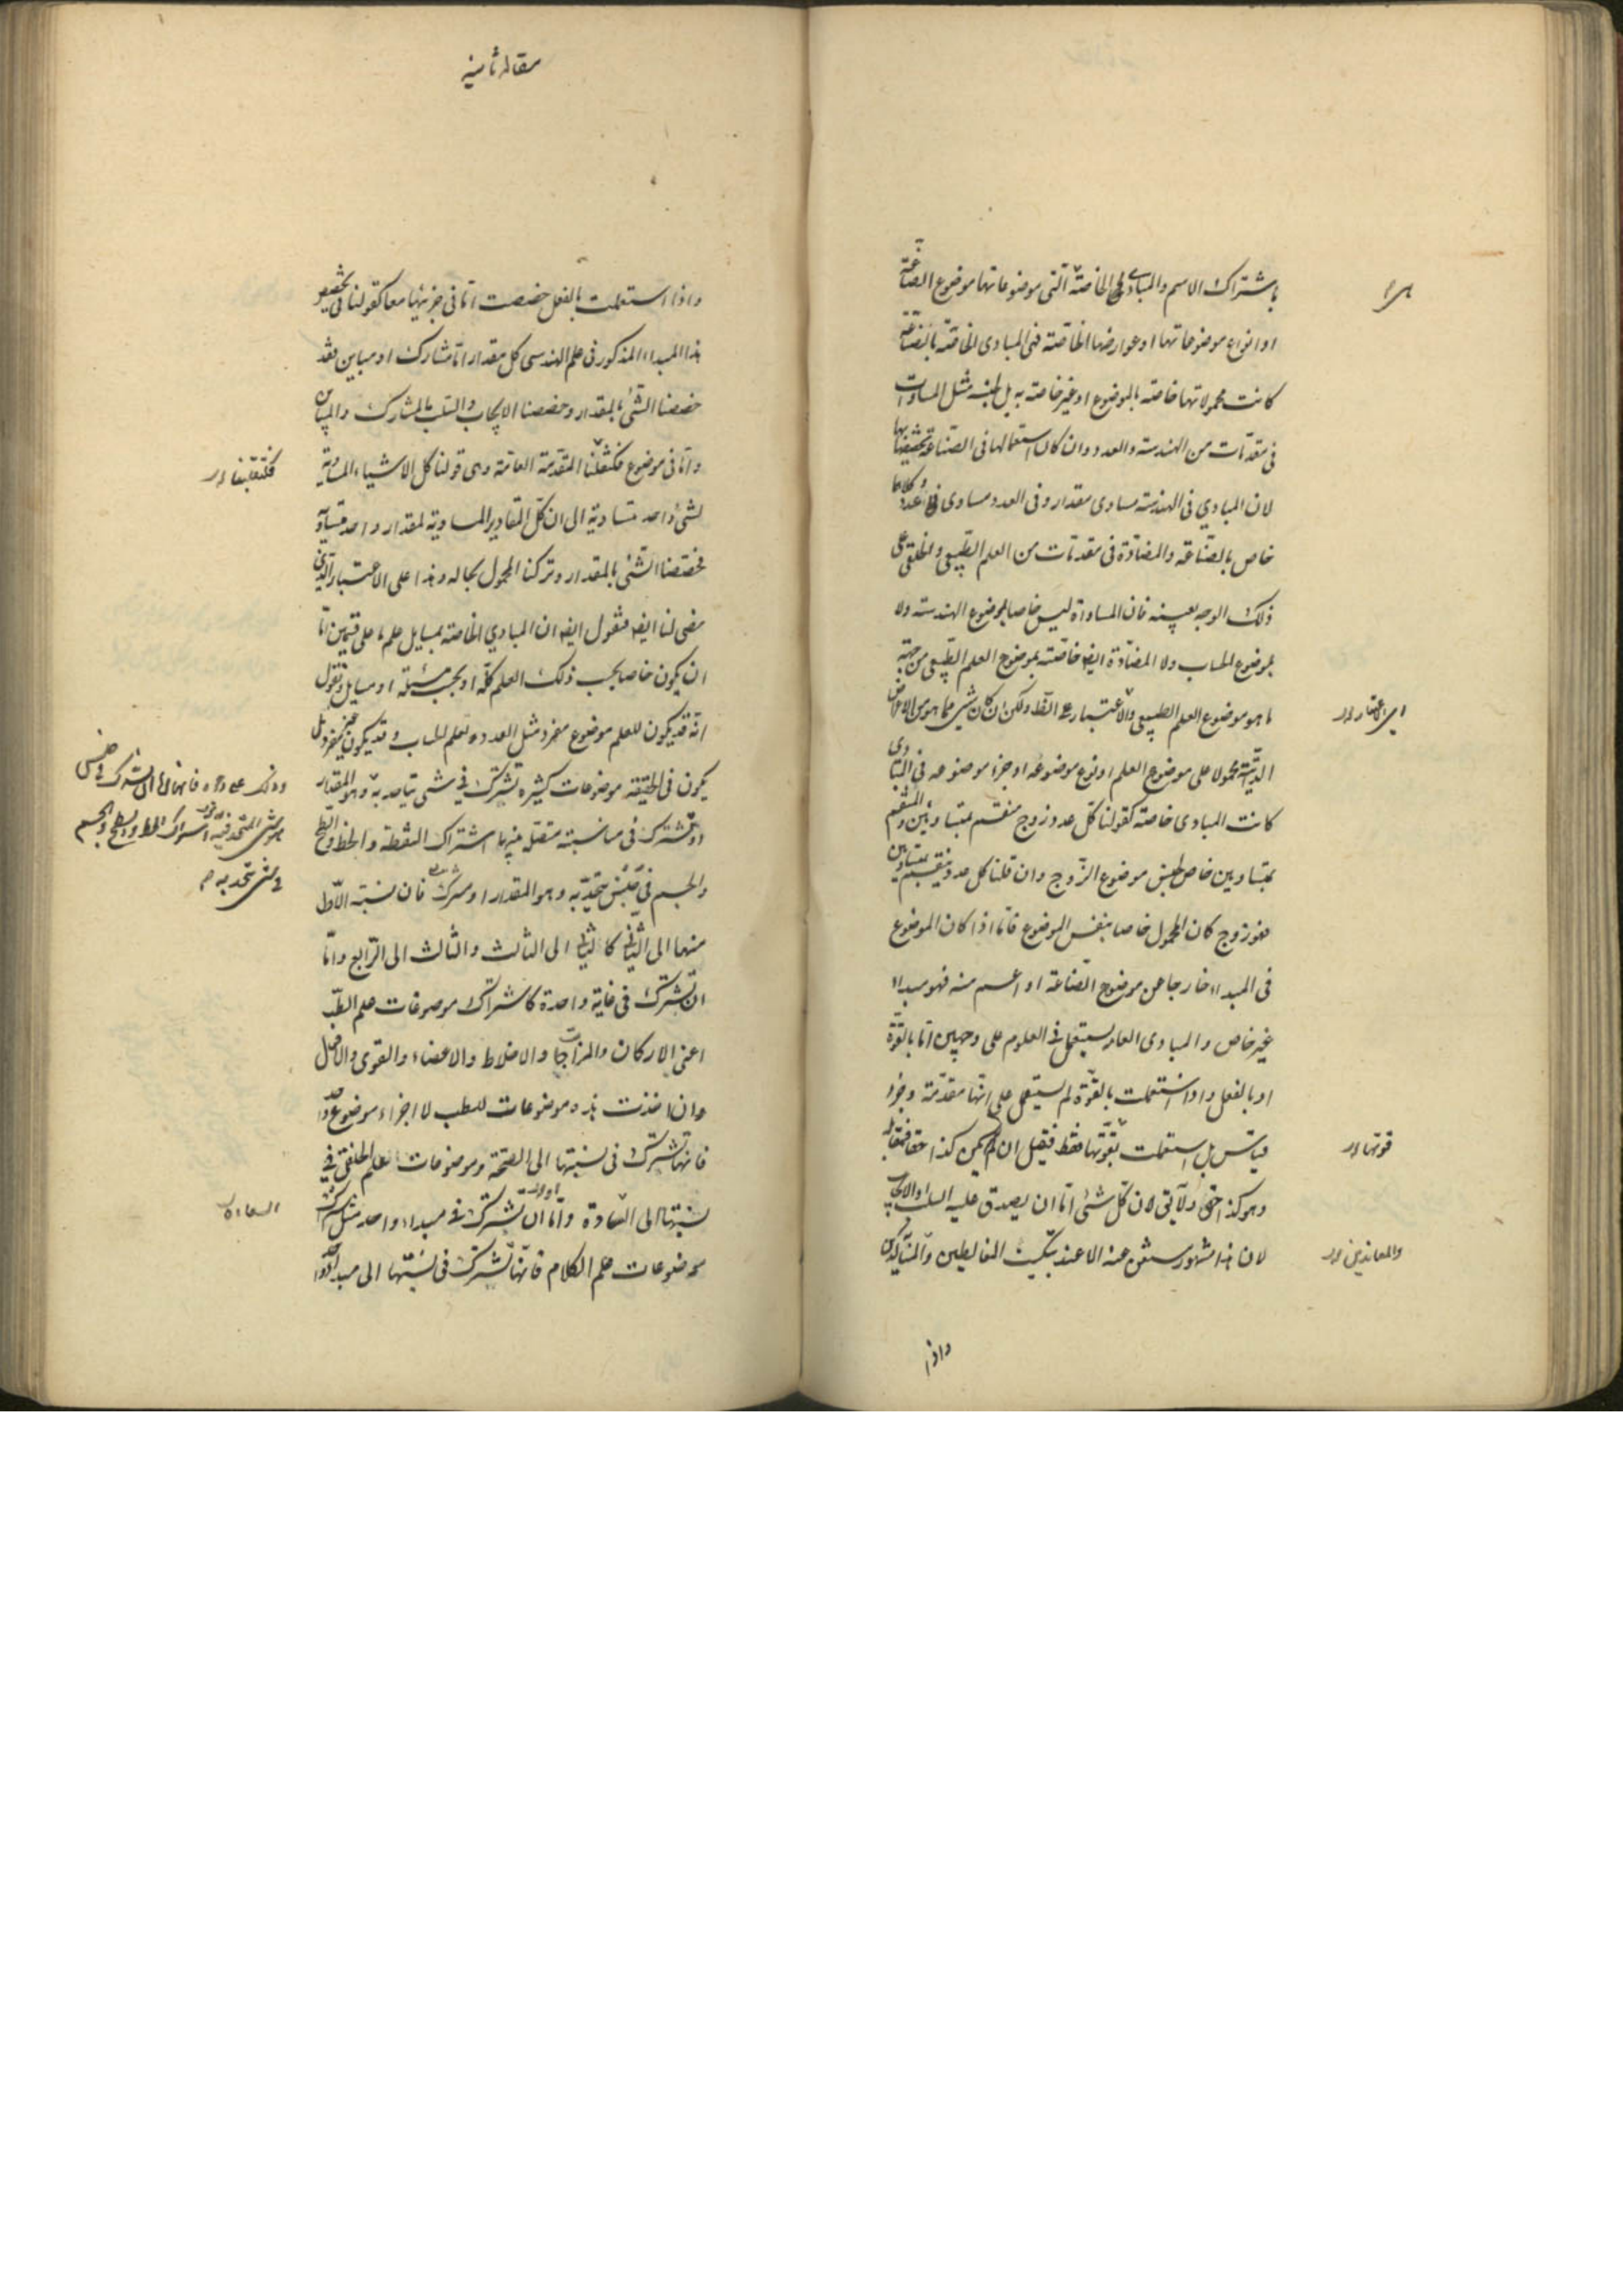 باشتراك الاسم والمبادى الخاصة التى موضوعاتها موضوع الصناعة
او انواع موضوعاتها او عوارضها الخاصة فهى المبادى الخاصة بالصناعة
كانت محمولاتها خاصة بالموضوع او غير خاصة به بل بجنسه مثل المساواة
فى مقدمات من الهندسة والعدد وان كان استعمالها فى الصناعة تخصيصا بها
لان المساوي فى الهندسة مساوى مقدار وفى العدد مساوى عدد وكلاهما
خاص بالصناعة والمضادة فى مقدمات من العلم الطبيعى والخلقى على
ذلك الوجه بعينه فان المساواة ليس خاصا بموضوع الهندسة ولا
بموضوع الحساب ولا المضادة ايضا خاصة بموضوع العلم الطبيعى من جهة
ما هو موضوع العلم الطبيعى والاعتبار ولكن ان كان شى مما هو من الاعراض
الذاتية محمولا على موضوع العلم او نوع موضوعه او جزء موضوعه فى المبادى
كانت المبادى خاصة كقولنا كل عدد زوج منقسم بمتساويين والمنقسم
بمتساويين خاص بجنس موضوع الزوج وان قلنا كل عدد ينقسم بمتساويين
فهو زوج كان المحمول خاصا بنفس الموضوع فاما اذا كان الموضوع
فى المبداء خارجا عن موضوع الصناعة او اعم منه فهو مبداء
غير خاص والمبادى العامة يستعمل فى العلوم على وجهين اما بالقوة
او بالفعل واذا استعملت بالقوة لم يستعمل على انها مقدمة وجزء
قياس بل استعملت بقوتها فقط فيقيل ان لم يكن كذا حقا فمقابله
وهو كذا حق ولا يقى لان كل شئ اما ان يصدق عليه السلب او الايجاب
لان هذا مشهور مستغن عنه الا عند تبكيت المغالطين والمناكدين
قوتها
والمعاندين
واذا
مقاله ثانيه
واذا استعملت بالفعل خصصت اما فى جزئيها معا كقولنا فى تخصيص
هذا المبداء المذكور فى علم الهندسى كل مقدار اما مشارك او مباين فقد
خصصنا الشئ بالمقدار وخصصنا الايجاب والسلب بالمشارك والمباين
واما فى موضوع فكنقلنا المقدمة العامة وهى قولنا كل الاشياء المساوية
لشئ واحد متساوية الى ان كل المقادير المساوية لمقدار واحد متساوية
فخصصنا الشئ بالمقدار وتركنا المحمول بحاله وهذا على الاعتبار الذى
مضى لنا ايضا فنقول ايضا ان المبادي الخاصة بمسايل علم ما على قسمين اما
ان يكون خاصا بحسب ذلك العلم كله او بحسب مسئلة او مسايل ونقول
انه قد يكون للعلم موضوع مفرد مثل العدد لعلم الحساب وقد يكون غير مفرد بل
يكون فى الحقيقة موضوعات كثيرة تشترك فى شئ يتاحد به وهو المقدار
او تشترك فى مناسبة متصلة بينها اشتراك النقطة والخط والسطح
والجسم فى جنس يتحد به وهو المقدار او مشترك فان نسبة الاول
منها الى الثانى كالثانى الى الثالث والثالث الى الرابع واما
ان تشترك فى غاية واحدة كاشتراك موضوعات علم الطب
اعنى الاركان والمزاجات والاخلاط والاعضاء والقوى والافعال
وان اخذت هذه موضوعات للطب لا اجزاء موضوع واحد
فانها تشترك فى نسبتها الى الصحة وموضوعات العلم الخلقى فى
نسبتها الى السعادة واما ان تشترك فى مبداء واحد مثل اشتراك
موضوعات علم الكلام فانها تشترك فى نسبتها الى مبداء واحد
وذلك على وجوه فانها اما ان تشترك فى جنس
اشتراك الخط والسطح والجسم
فى جنس يتحد به